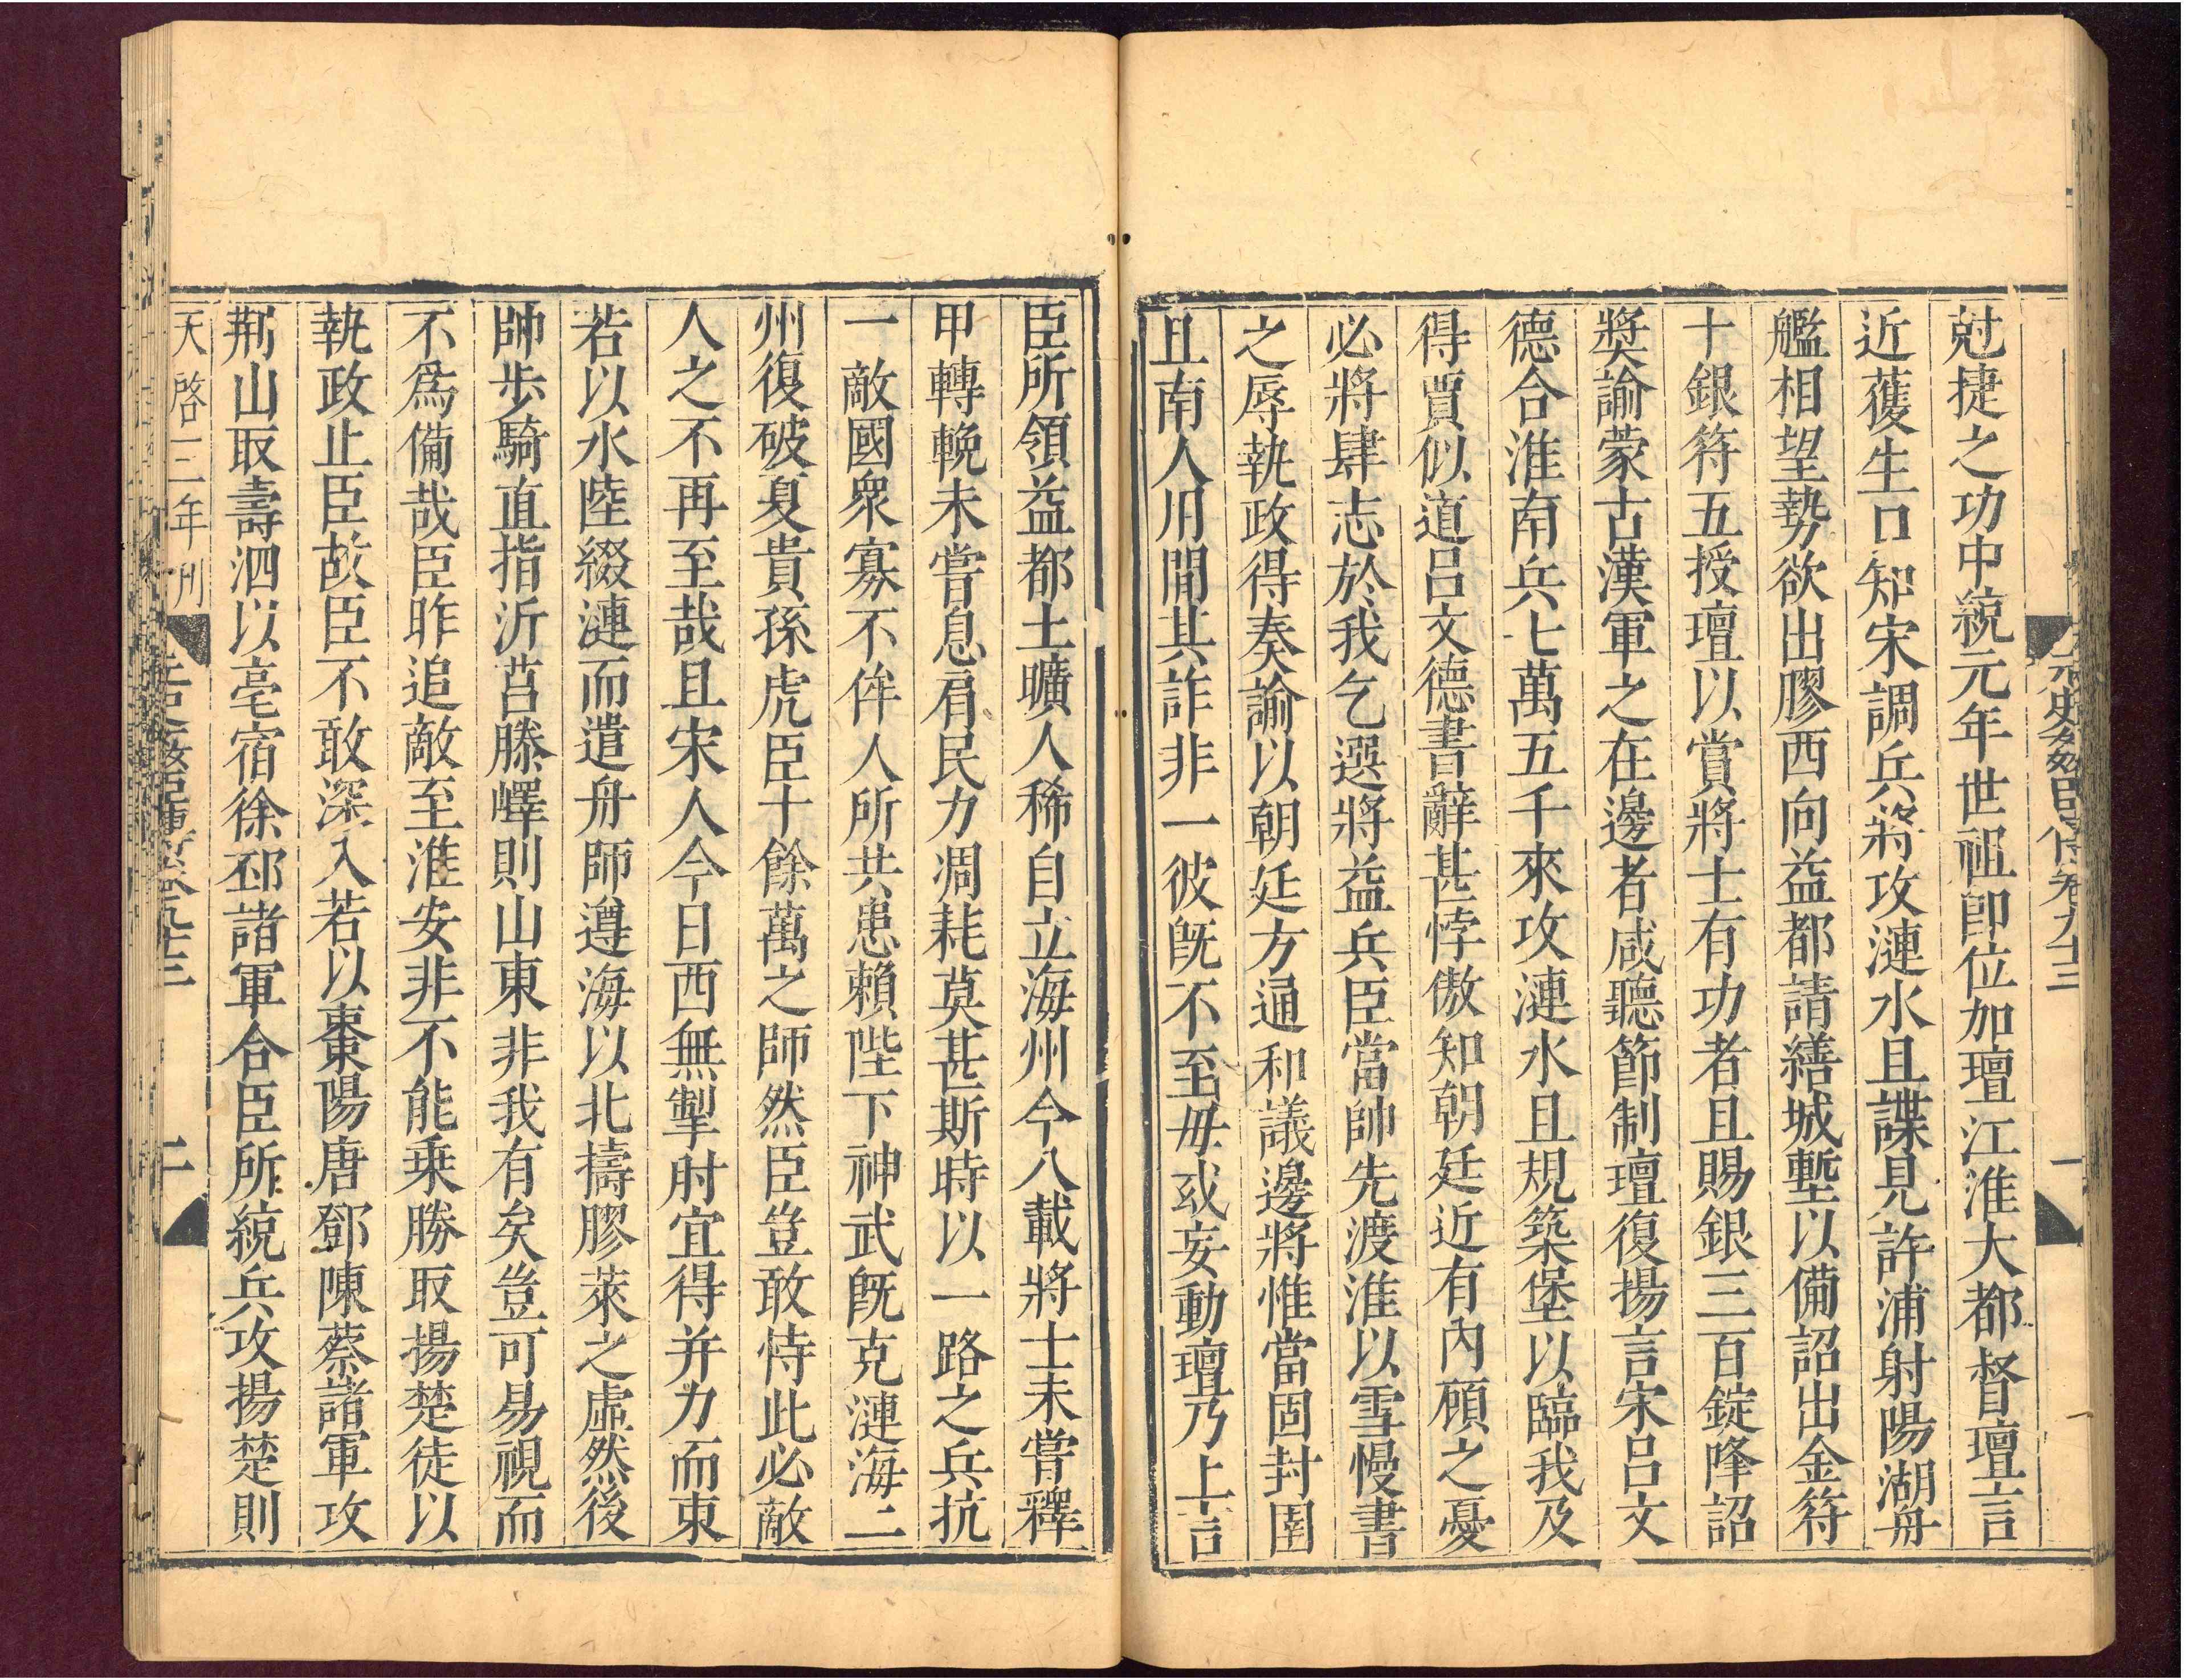 元史姦臣傳卷九十三 一
尅捷之功中統元年世祖即位加璮江淮大都督璮言
近獲生口知宋調兵將攻漣水且諜見許浦射陽湖舟
艦相望勢欲出膠西向益都請繕城塹以備詔出金符
十銀符五授璮以賞將士有功者且賜銀三百錠降詔
奬諭蒙古漢軍之在邊者咸聽節制璮復揚言宋呂文
德合淮南兵七萬五千來攻漣水且規築堡以臨我及
得賈似道呂文德書辭甚悖傲知朝廷近有內顧之憂
必將肆志於我乞選將益兵臣當帥先渡淮以雪慢書
之辱執政得奏諭以朝廷方通和議邊將惟當固封圉
且南人用間其詐非一彼旣不至毋或妄動璮乃上言
臣所領益都土曠人稀自立海州今八載將士未嘗釋
甲轉輓未嘗息肩民力凋耗莫甚斯時以一路之兵抗
一敵國衆寡不侔人所共患賴陛下神武旣克漣海二
州復破夏貴孫虎臣十餘萬之師然臣豈敢恃此必敵
人之不再至哉且宋人今日西無掣肘宜得并力而東
若以水陸綴漣而遣舟師遵海以北擣膠萊之虛然後
帥步騎直指沂莒滕嶧則山東非我有矣豈可易視而
不爲備哉臣昨追敵至淮安非不能乘勝取揚楚徒以
執政止臣故臣不敢深入若以棗陽唐鄧陳蔡諸軍攻
荊山取壽泗以亳宿徐邳諸軍合臣所統兵攻揚楚則
天啓三年刊
二